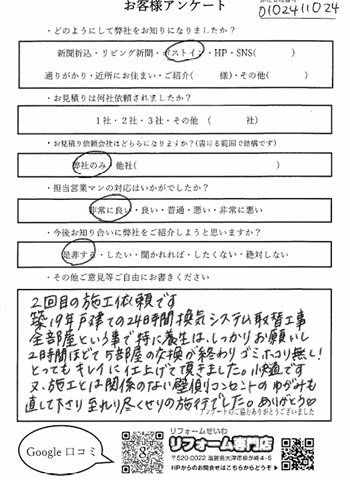 お客様アンケート
0102411024
・どのようにして弊社をお知りになりましたか？
新聞折込・リビング新聞・ポストイン・HP・SNS( )
通りがかり・近所にお住まい・ご紹介( 様)・その他( )
・お見積りは何社依頼されましたか？
1社・2社・3社・その他 ( 社)
・お見積り依頼会社はどちらになりますか？(書ける範囲で結構です)
弊社のみ・他社( )
・担当営業マンの対応はいかがでしたか？
非常に良い・良い・普通・悪い・非常に悪い
・今後お知り合いに弊社をご紹介しようと思いますか？
是非する・したい・聞かれれば・したくない・絶対しない
・その他ご意見等ご自由にお書きください
2回目の施工依頼です
築19年戸建ての24時間換気システム取替工事
全部屋という事で特に養生は、しっかりお願いし
2時間ほどで5部屋の交換が終わりゴミホコリ無し!
とってもキレイに仕上げて頂きました。快適です
又、施工とは関係のない壁側コンセントのゆがみも
直して下さり至れり尽くせりの施行でした。ありがとう♡
アンケートのご協力ありがとうございました
Google口コミ
リフォームせいわ
リフォーム専門店
〒520-0022 滋賀県大津市柳が崎4-5
HPからのお問合せはこちらからどうぞ▶